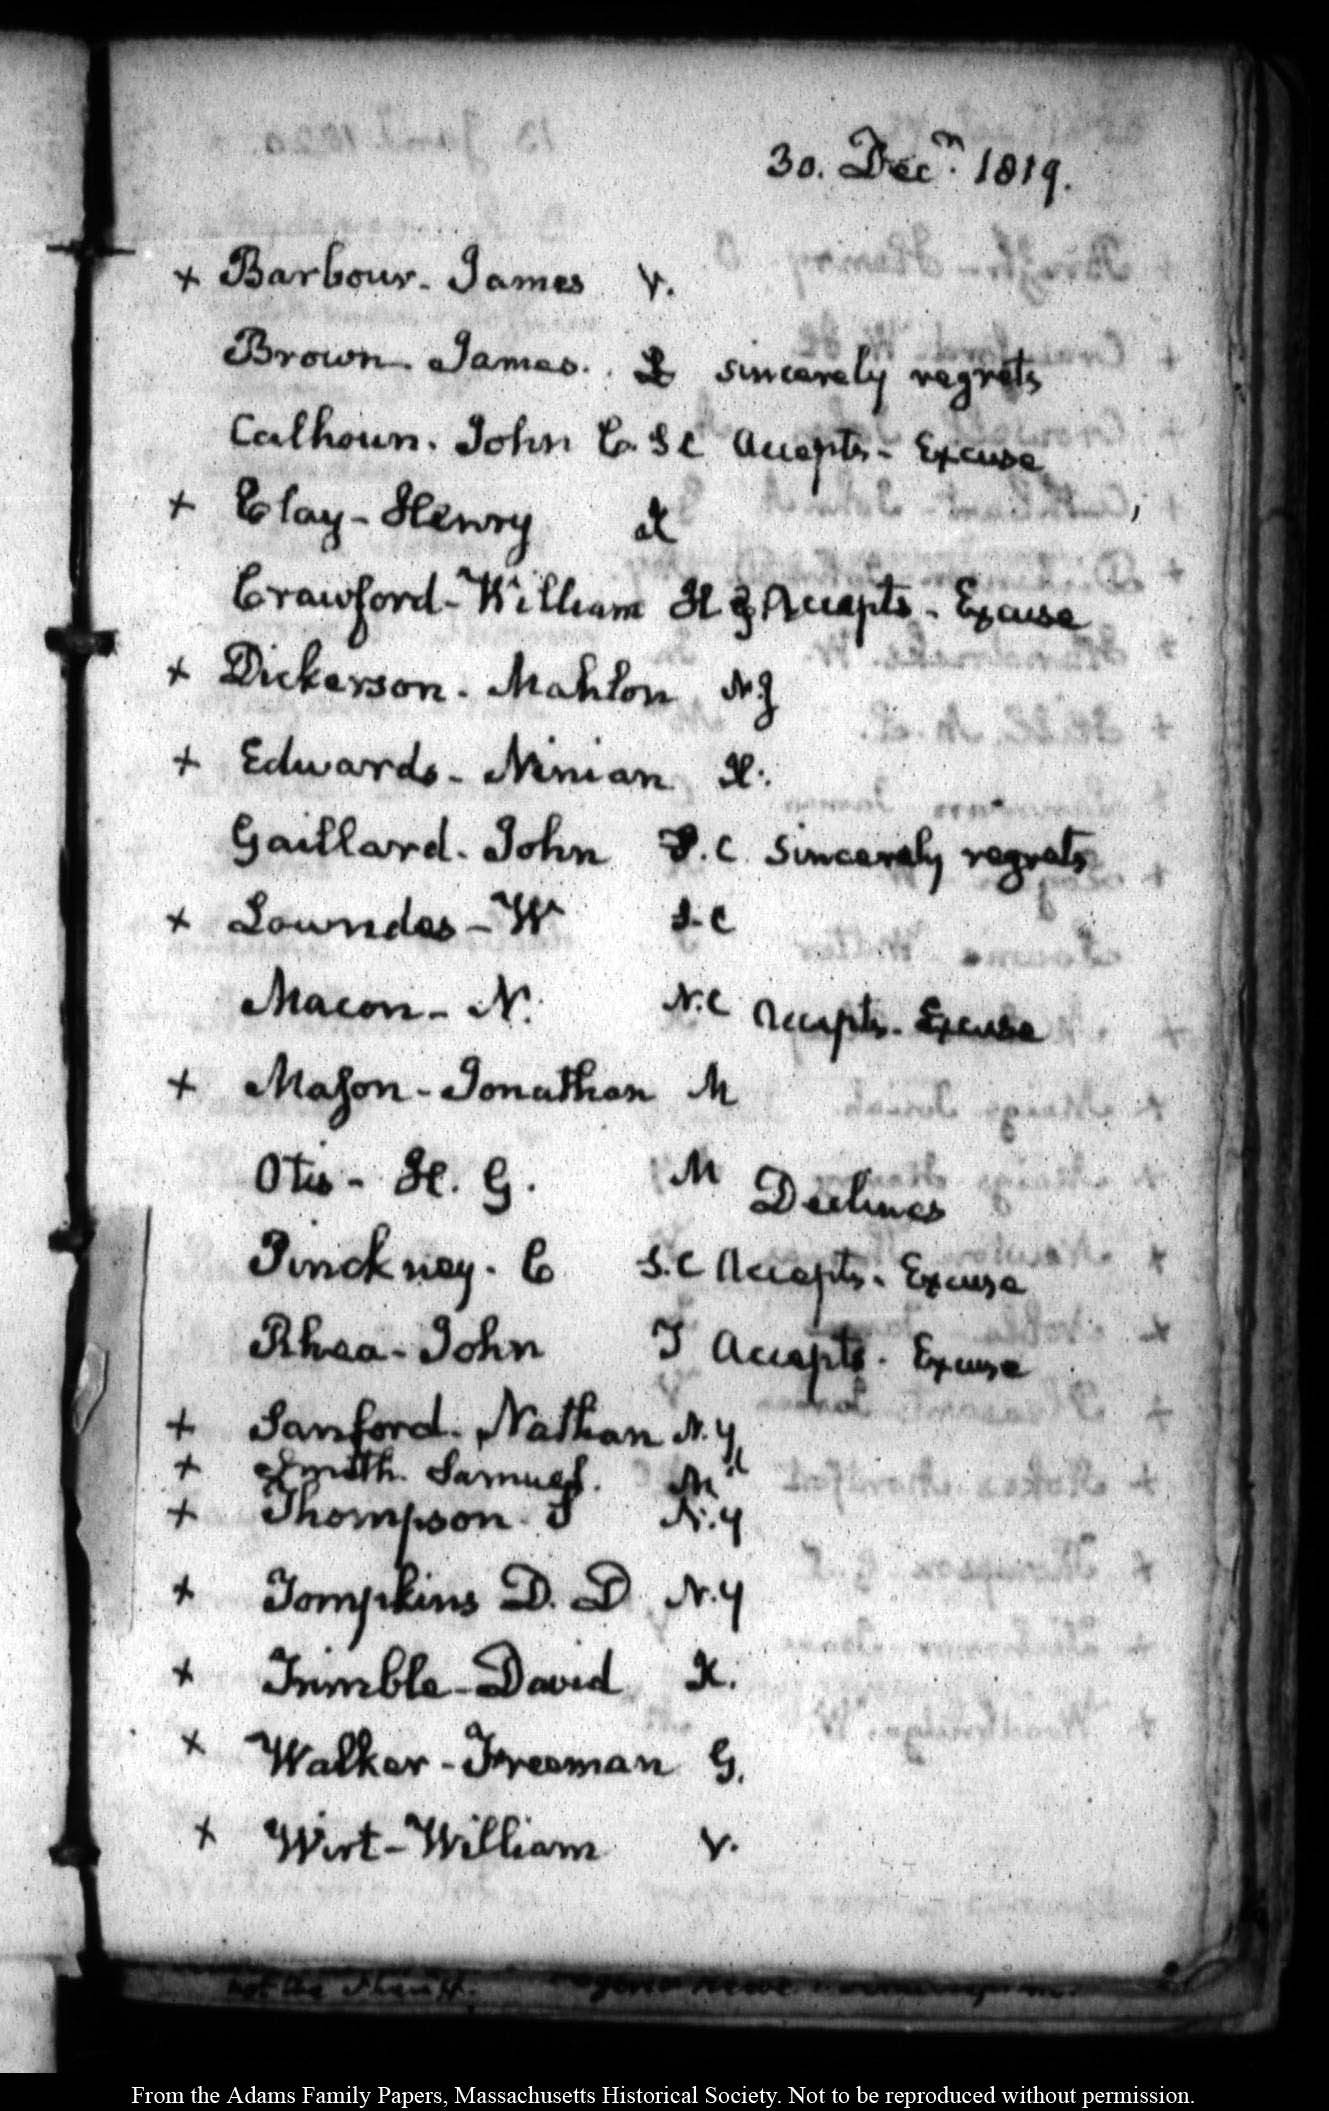 30. Decr. 1819.
+ Barbour. James V.
Brown. James. L sincerely regrets
Calhoun. John C. S C Accepts - Excuse
+ Clay - Henry K
Crawford - William H G Accepts - Excuse
+ Dickerson - Mahlon N J
+ Edwards - Ninian Il:
Gaillard. John S. C. Sincerely regrets
+ Lowndes - W S. C
Macon - N. N. C Accepts - Excuse
+ Mason - Jonathan M
Otis - H. G. M Declines
Pinckney. C S. C Accepts - Excuse
Rhea - John T Accepts - Excuse
+ Sanford. Nathan N. Y
+ Smith. Samuel. Md
+ Thompson. J N. Y
+ Tompkins D. D N. Y
+ Trimble - David K.
+ Walker - Freeman G.
+ Wirt - William V.
From the Adams Family Papers, Massachusetts Historical Society. Not to be reproduced without permission.